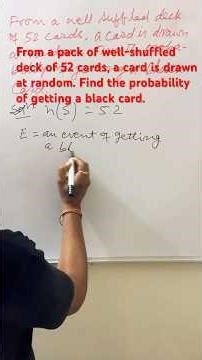 From a well suffled deck
of 52 cards. a card is drawn
From a pack of well-shuffled
deck of 52 cards, a card is drawn
at random. Find the probability
of getting a black card.
n(S) = 52
E = an event of getting
a bl